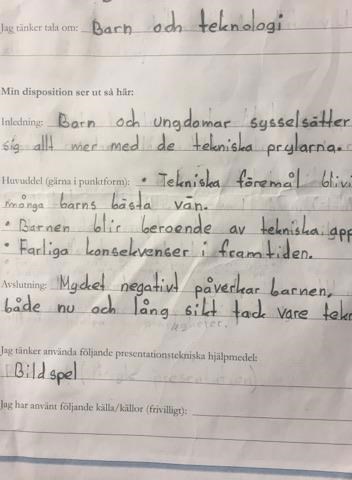 Jag tänker tala om: Barn och teknologi
Min disposition ser ut så här:
Inledning: Barn och ungdomar sysselsätter
sig allt mer med de tekniska prylarna.
Huvuddel (gärna i punktform): • Tekniska föremål blivi
många barns bästa vän.
• Barnen blir beroende av tekniska app
• Farliga konsekvenser i framtiden.
Avslutning: Mycket negativt påverkar barnen,
både nu och lång sikt tack vare tekn
Jag tänker använda följande presentationstekniska hjälpmedel:
Bildspel
Jag har använt följande källa/källor (frivilligt):